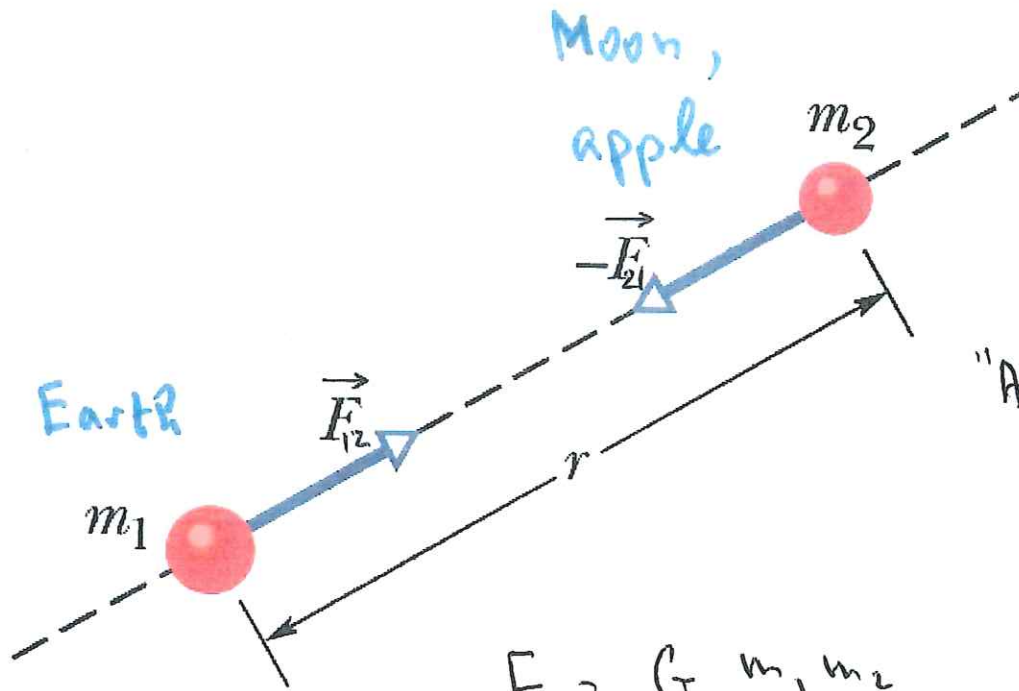 Moon,
apple
m₂
-F₂₁
Earth
F₁₂
"A
r
m₁
F = G m₁ m₂